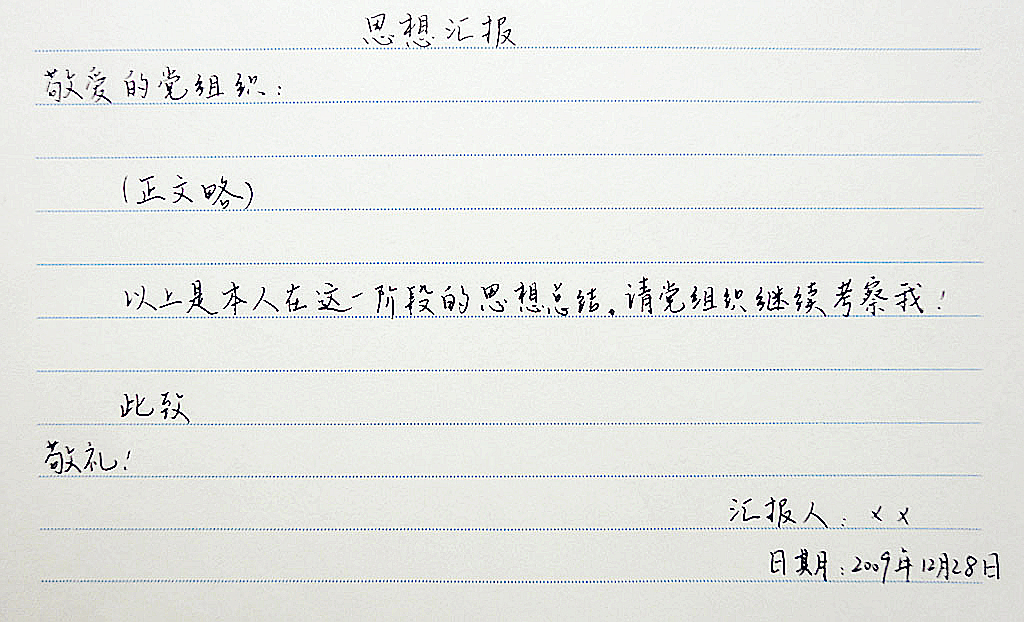 思想汇报
敬爱的党组织：
（正文略）
以上是本人在这一阶段的思想总结。请党组织继续考察我！
此致
敬礼！
汇报人：××
日期：2009年12月28日